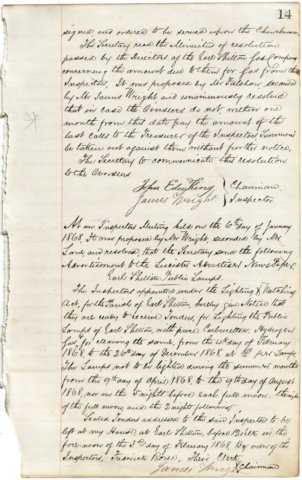 14
signed and ordered to be served upon the Churchwardens
The Secretary read the Minutes of resolution
passed by the Directors of the Earl Shilton Gas Company
concerning the amount due to them for Gas from the
Inspectors. It was proposed by Mr seconded
by Mr James Wright and unanimously resolved
that in case the Overseers do not within one
month from this date pay the amount of the
last Calls to the Treasurer of the Inspectors Summons
be taken out against them without further notice.
The Secretary to communicate this resolution
to the Overseers
John Chairman
James Wright Inspector
At an Inspectors Meeting held on the 6th day of January
1868, It was proposed by Mr Wright, seconded by Mr
and resolved that the Secretary send the following
Advertisement to the Leicester Advertiser News Paper,
Earl Shilton Public Lamps.
The Inspectors appointed under the Lighting & Watching
Act, for the Parish of Earl Shilton hereby give Notice that
they are ready to receive Tenders, for Lighting the Public
Lamps of Earl Shilton with pure Carburetted Hydrogen
Gas, for cleaning the same, from the day of February
1868, to the 26th day of December 1868, at per Lamp
The Lamps not to be lighted during the summer months
from the 9th day of April 1868, to the 9th day of August
1868, nor on the nights before each full moon, the night
of the full moon and the 2 nights following.
Sealed Tenders addressed to the said Inspectors to be
left at my House, at Earl Shilton, before in the
fore noon of the 3rd day of February 1868, By order of the
Inspectors, Frederick their Clerk.
James Wright Chairman